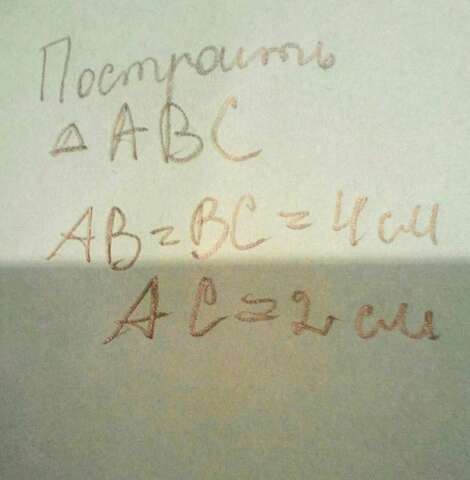 Построить
△ABC
AB=BC=4см
AC=2см